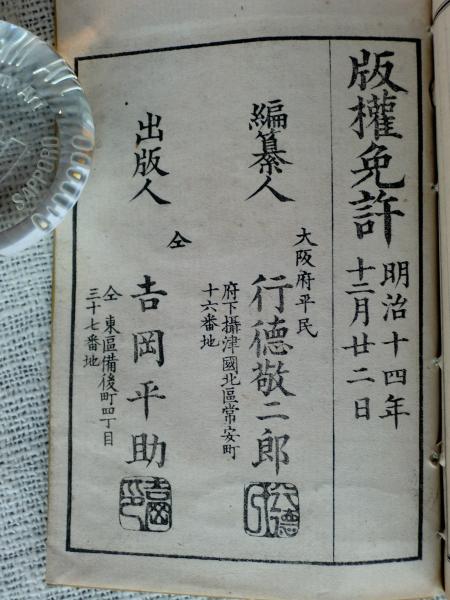 版權免許
明治十四年
十二月廿二日
編纂人
大阪府平民
行德敬二郎
府下攝津國北區常安町
十六番地
出版人
仝
吉岡平助
仝 東區備後町四丁目
三十七番地
SAPPORO